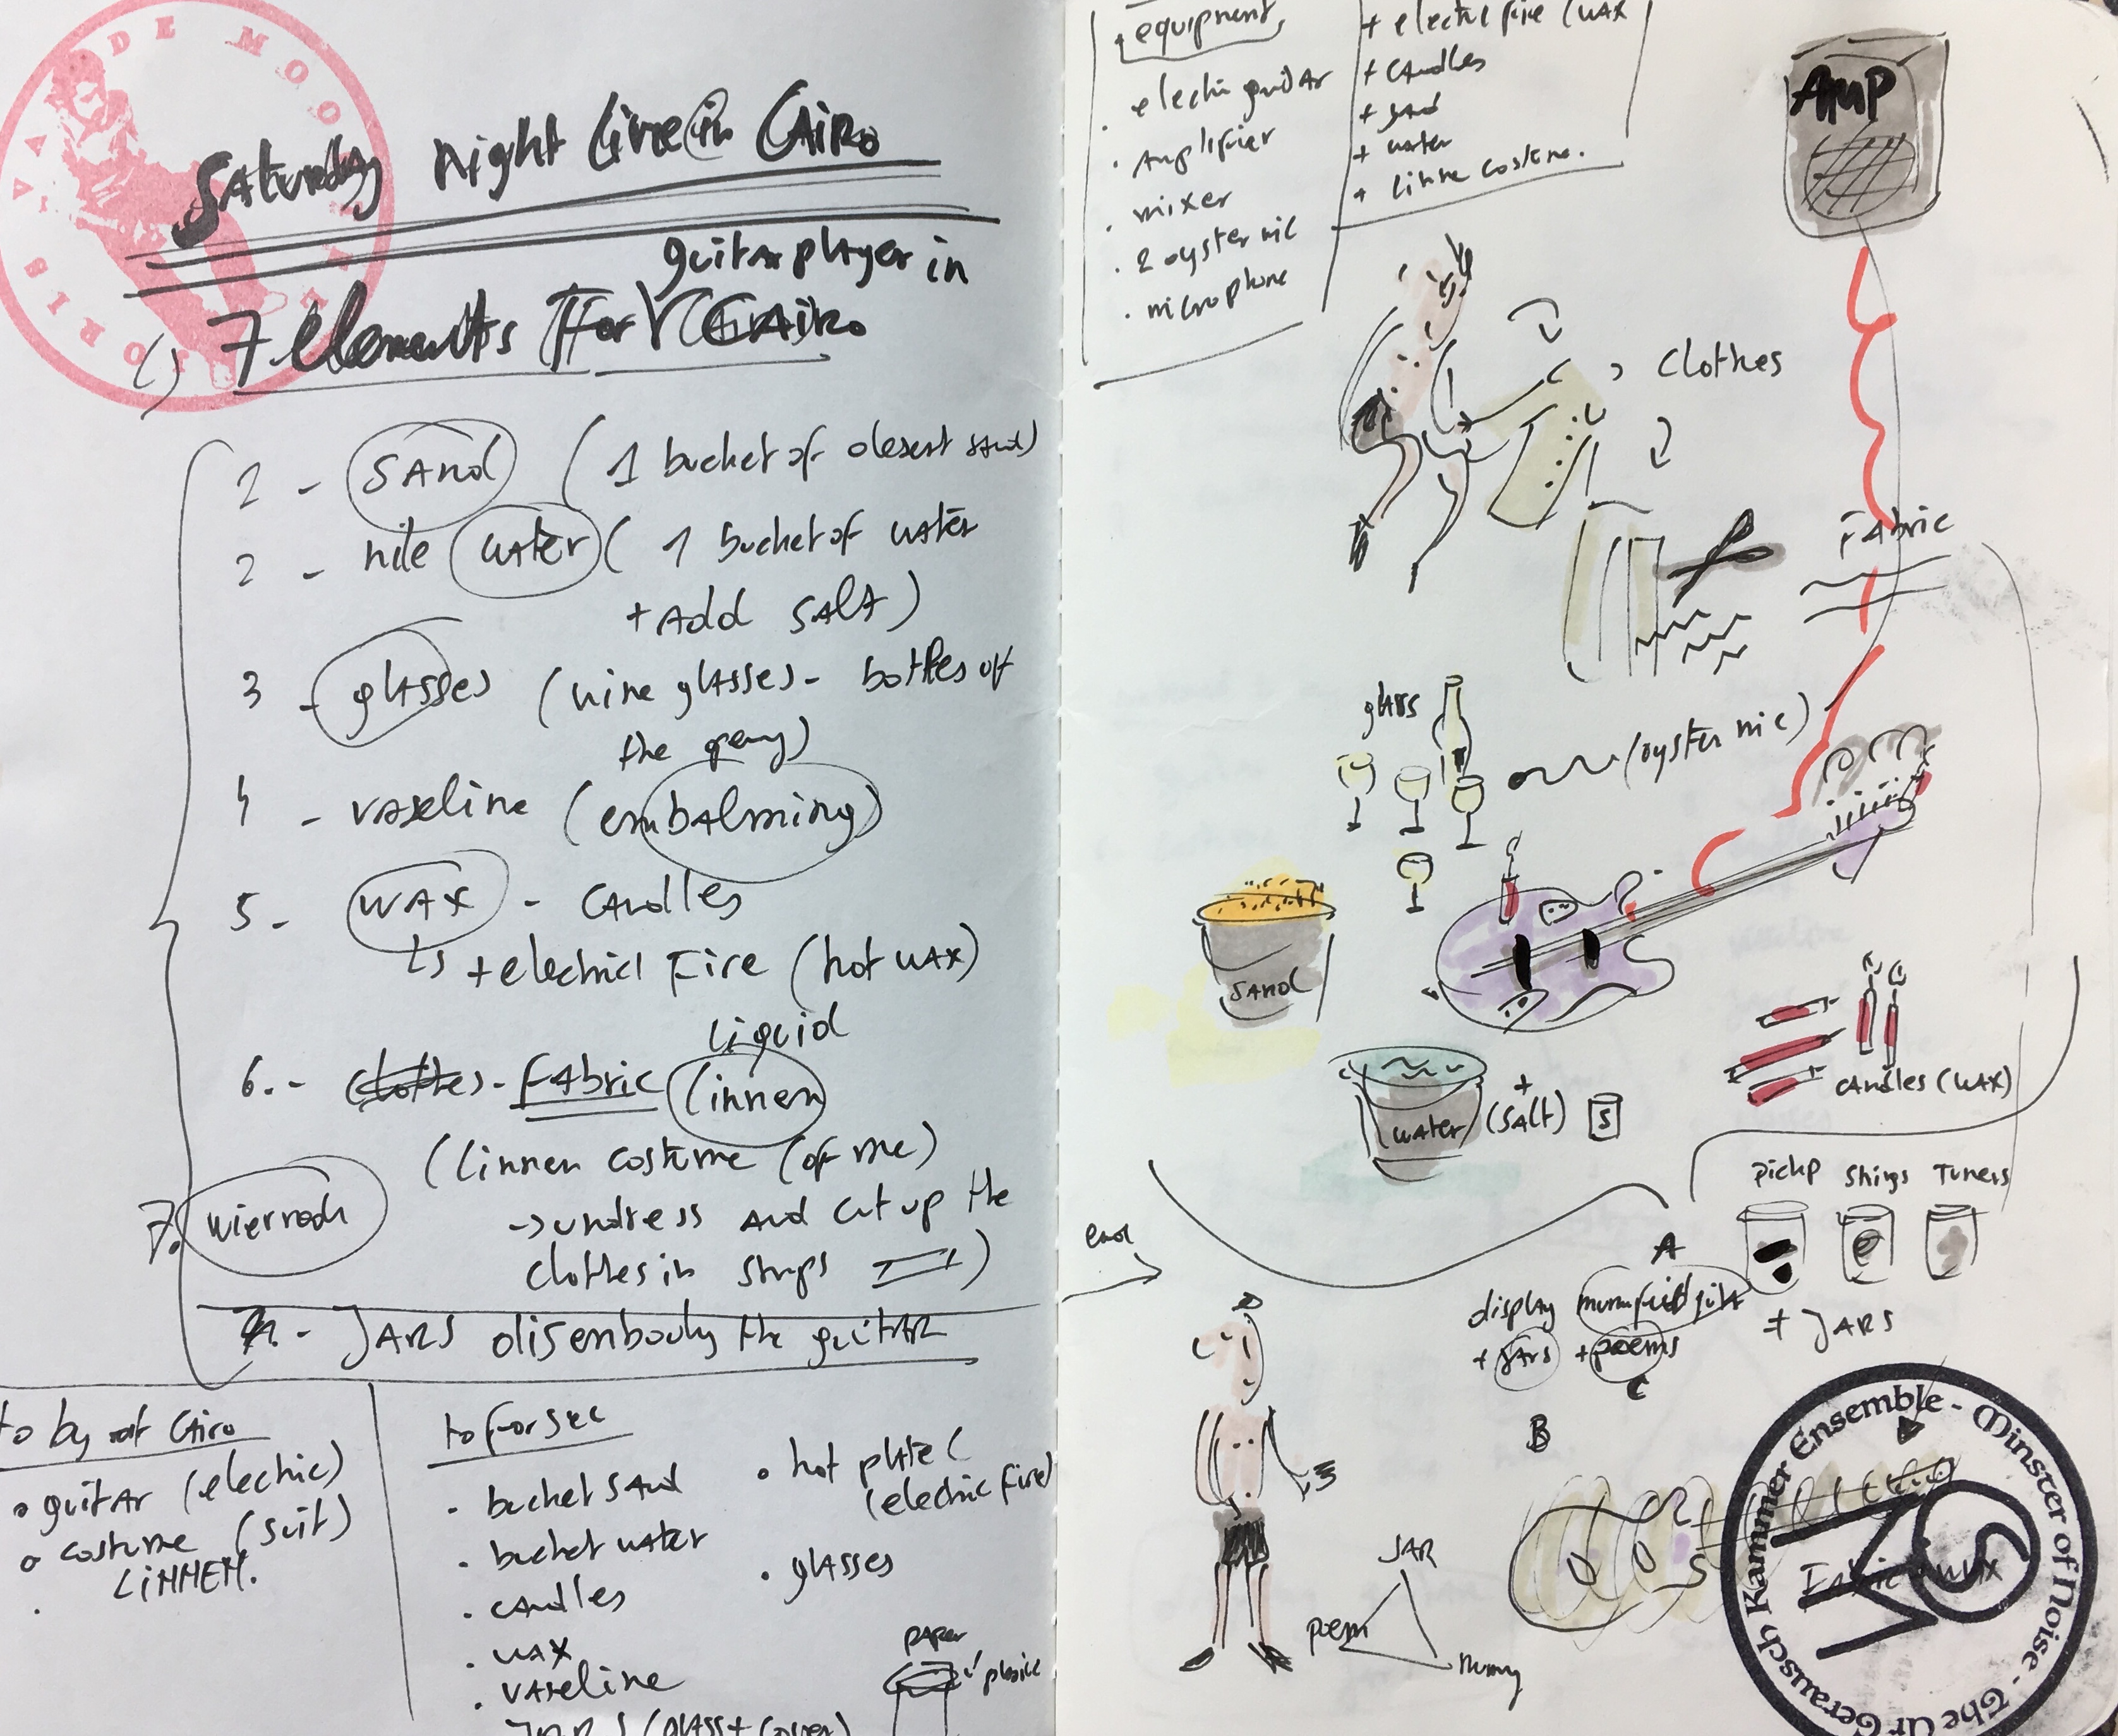 Saturday night live in Cairo
guitar player in
1) 7 elements for Cairo
2 - SAnd (1 bucket of desert sand)
2 - nile water (1 bucket of water
+ Add SALt)
3 - glasses (wine glasses - bottles of
the
4 - vaseline (embalming)
5 - WAX - CAndles
+ electrical Fire (hot wAX)
Liquid
6. - clothes - FAbric (linnen
(Linnen costume (of me)
-> undress and cut up the
clothes in strips
7.
- JARS disembody the guitar
to by at Cairo
• guitar (electric)
o costume (suit)
LiNNEN.
to
• bucket sand
• bucket water
• candles
• wax
• vaseline
JARS (glass + cover)
• hot plate (
(electric fire)
• glasses
paper
plastic
equipment
• electric guitar
• Amplifier
• mixer
• 2 oyster mic
• microphone
+ electric fire (wax
+ candles
+ sand
+ water
+ Linnen costume.
AMP
Clothes
FAbric
glass
(oyster mic)
SAnd
WAter
+
(SAlt)
S
CAndles (WAX)
pickp
Strings
Tuners
+ JARS
end
A
display mummified guitar
+ jars + poems
C
B
JAR
poem
mummy
Fabric + WAX
The Ur Gerausch Kammer Ensemble - Minster of Noise -
MS